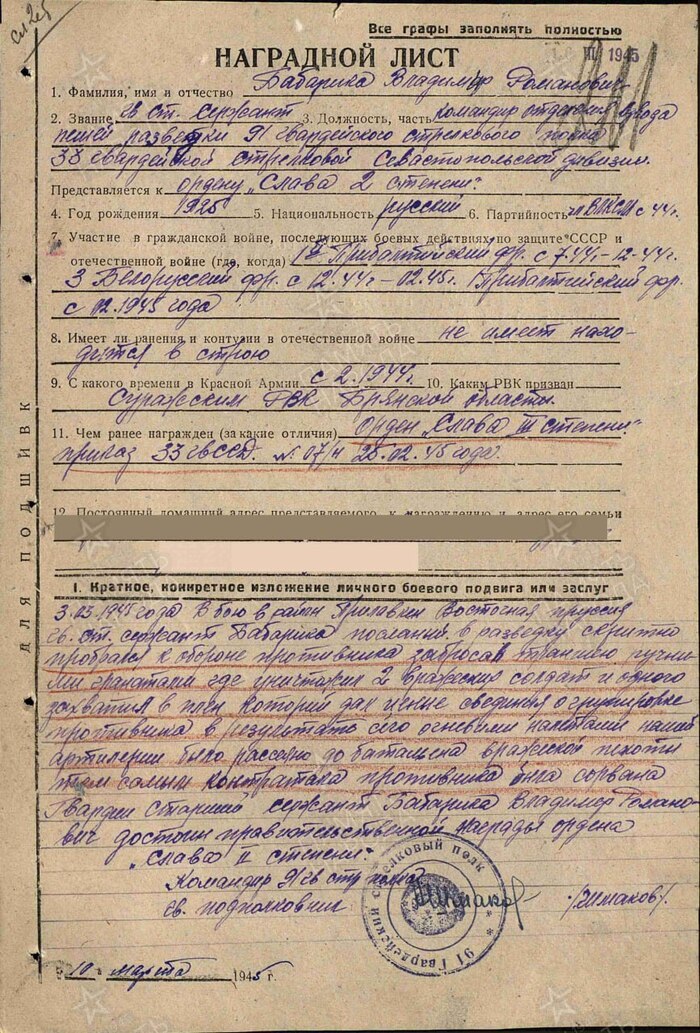 сл 2еб
Все графы заполнять полностью
III 1945
НАГРАДНОЙ ЛИСТ
1. Фамилия, имя и отчество Бабарика Владимир Романович
2. Звание гв ст. сержант 3. Должность, часть командир отделения взвода
пешей разведки 91 гвардейского стрелкового полка
33 гвардейской стрелковой Севастопольской дивизии.
Представляется к ордену „Слава 2 степени“
4. Год рождения 1925 5. Национальность русский 6. Партийность чл ВЛКСМ с 44г.
7. Участие в гражданской войне, последующих боевых действиях по защите СССР и
отечественной войне (где, когда) Iй Прибалтийский фр. с 7.44г.-12-44г.
3 Белорусский фр. с 12.44г – 02.45г. 1 Прибалтийский фр.
с 02.1945 года
8. Имеет ли ранения и контузии в отечественной войне не имеет нахо-
дится в строю
9. С какого времени в Красной Армии с 2.1944г. 10. Каким РВК призван
Суражским РВК Брянской области.
11. Чем ранее награжден (за какие отличия) Орден „Слава III степени“
приказ 33 гвССД. №07/н 25.02.45 года.
12. Постоянный домашний адрес представляемого к награждению и адрес его семьи
ДЛЯ ПОДШИВК
I. Краткое, конкретное изложение личного боевого подвига или заслуг
3.03.1945 года В бою в район Прилавкен Восточная пруссия
гв. ст. сержант Бабарика посланий в разведку скритно
пробрался к обороне противника забросав траншею ручны-
ми гранатами где унистожил 2 вражеских солдат и одного
захватил в плен который дал ценые свединия о групировке
противника в результате чего огневыми налетами нашей
артилерии было рассеяно до батальена вражеской пехоты
тем самым контратака противника была сорвана
Гвардии старший сержант Бабарика Владимер Романо-
вич достоин правительственной награды ордена
„Слава II степени“
Командир 91 гв стр полка
гв. подполковник /Зимаков/.
91 Гвардейский стрелковый полк
"10" марта 1945 г.